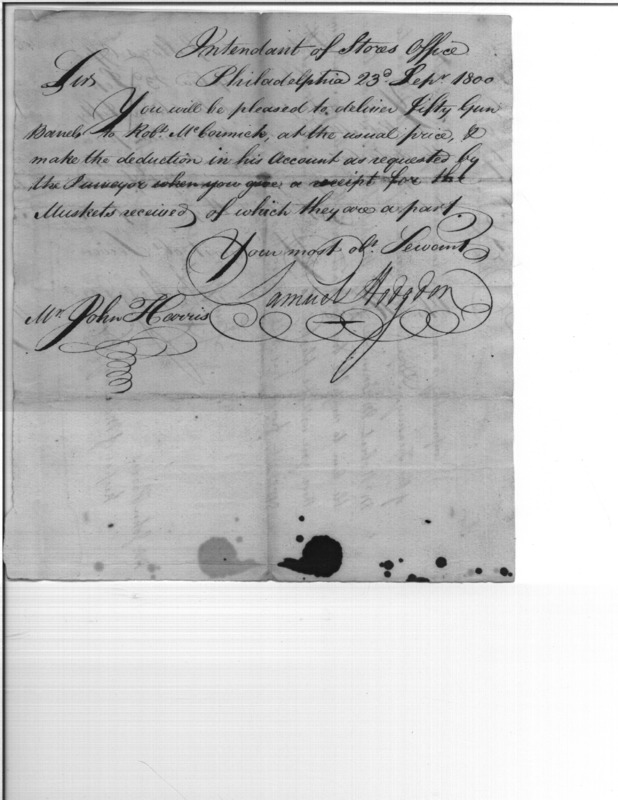 Intendant of Stores Office
Philadelphia 23d Sepr 1800
Sir
You will be pleased to deliver Fifty Gun
Barrels to Robt. McCormick, at the usual price, &
make the deduction in his Account as requested by
the Purveyor when you give a receipt for the
Muskets received of which they are a part
Your most obt. Servant
Samuel Hodgdon
Mr. John Harris